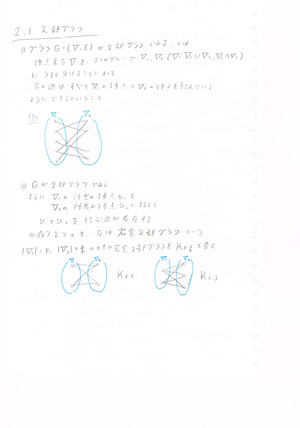 2.1 2部グラフ
◎グラフG=(V,E)が2部グラフであるとは
頂点集合Vを、2つのグループV₁,V₂(V=V₁∪V₂,V₁∩V₂)
にうまく分けることによって
Gの辺はすべてV₁の頂点とV₂の頂点を結んでいる
ようにできるということ
例)
V₁ V₂
◎Gが2部グラフであり
さらにV₁の任意の頂点v₁と
V₂の任意の頂点v₂に対して
v₁とv₂を結ぶ辺が存在する
が成り立つとき、Gは完全2部グラフという
|V₁|=p,|V₂|=qのときの完全2部グラフをKp,qと書く
V₁ V₂ V₁ V₂